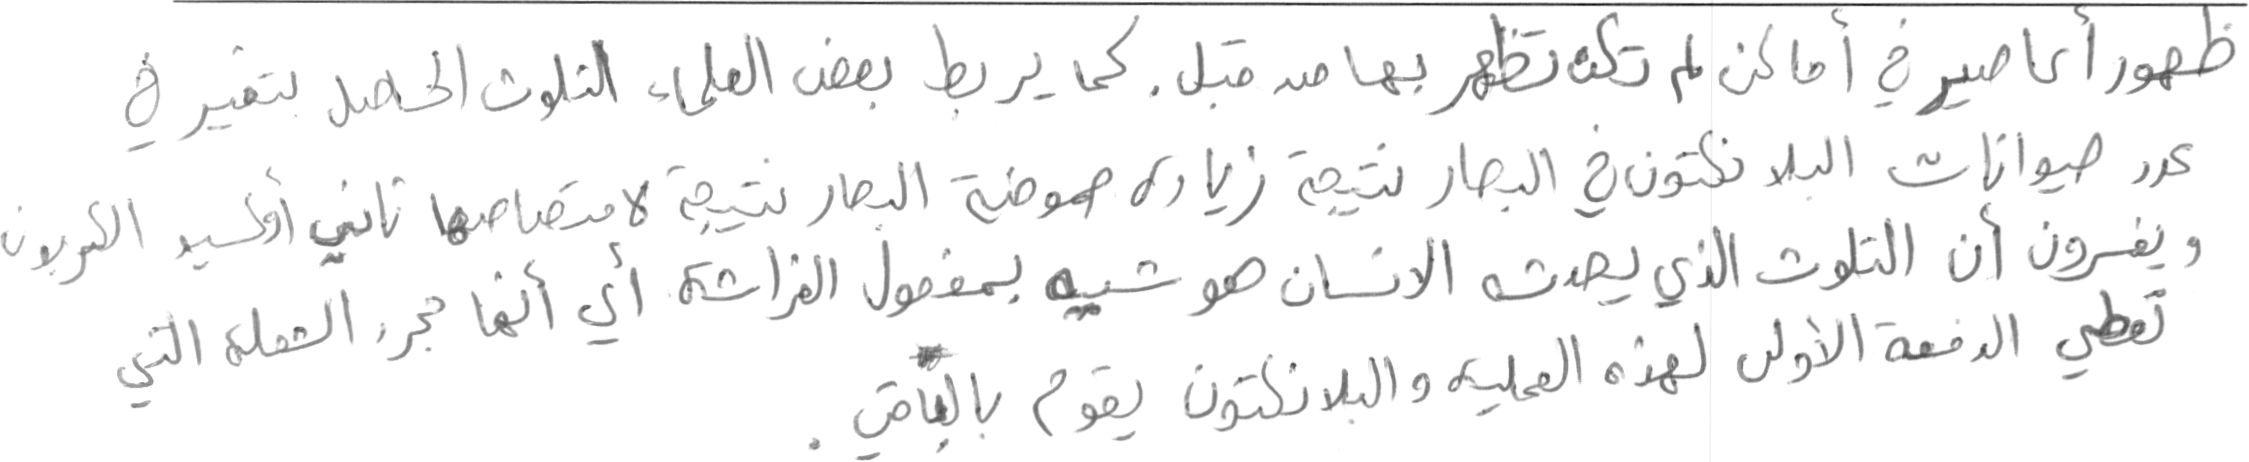 ظهور أعاصير في أماكن لم تكن تظهر بها من قبل. كما يربط بعض العلماء التلوث الحاصل بتغير في
عدد حيوانات البلانكتون في البحار نتيجة زيادة حموضة البحار نتيجة لامتصاصها ثاني أوكسيد الكربون
ويفسرون أن التلوث الذي يحدثه الانسان هو شبيه بمفعول الفراشة أي أنها مجرد الشعلة التي
تعطي الدفعة الأولى لهذه العملية والبلانكتون يقوم بالباقي.